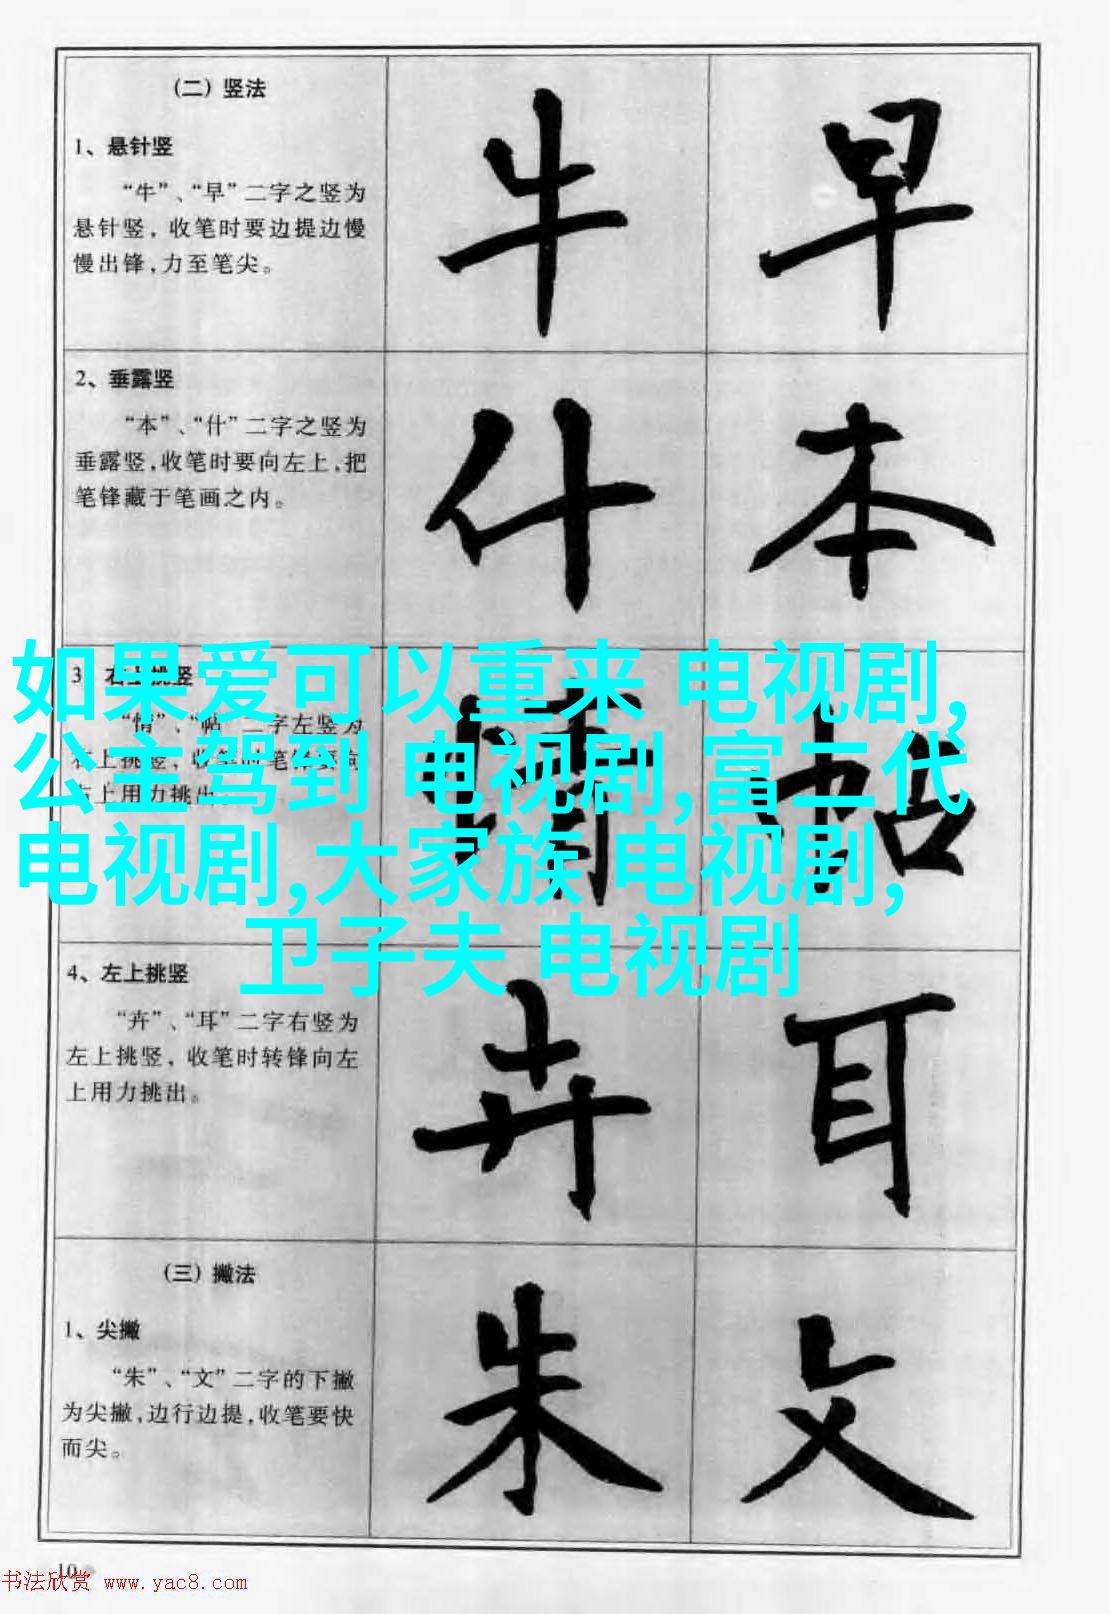 (二) 竖法
1、悬针竖
“牛”、“早”二字之竖为
悬针竖, 收笔时要边提边慢
慢出锋,力至笔尖。
牛 早
2、垂露竖
“本”、“什”二字之竖为
垂露竖,收笔时要向左上,把
笔锋藏于笔画之内。
什 本
3、右上挑竖
“情”、“帖”二字左竖为
右上挑竖,
右上用力挑出。
情 帖
如果爱可以重来 电视剧,
公主驾到 电视剧,富二代
电视剧,大家族 电视剧,
卫子夫 电视剧
4、左上挑竖
“卉”、“耳”二字右竖为
左上挑竖, 收笔时转锋向左
上用力挑出。
卉 耳
(三) 撇法
1、尖撇
“朱”、“文”二字的下撇
为尖撇,边行边提,收笔要快
而尖。
朱 文
10
书法欣赏 www.yac8.com